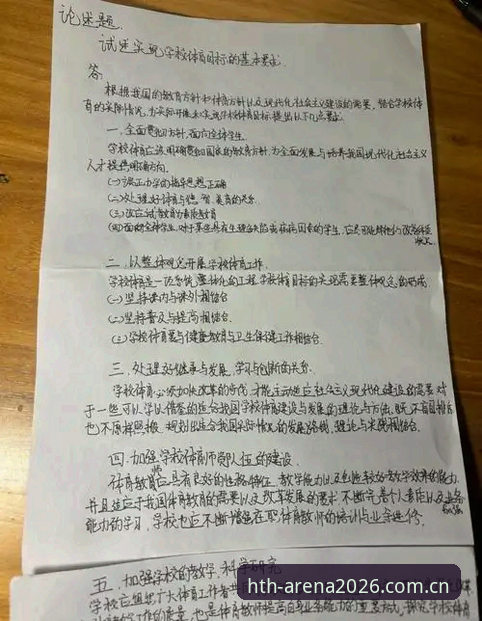 论述题.
试述实现学校体育目标的基本要求.
答:
根据我国的教育方针和体育方针以及现代化社会主义建设的需要, 结合学校体
育的实际情况, 为实际开展和实现学校体育目标, 提出以下几点要求:
一. 全面贯彻方针, 面向全体学生.
学校体育应该明确贯彻国家的教育方针, 为全面发展与培养我国现代化社会主义
人才提供明确方向.
(一)端正办学的指导思想, 正确
(二)处理好体育与德、智、美育的关系.
(三)改应试教育为素质教育
(四)面向全体学生. 对于某些具有生理缺陷或疾病因素的学生,
二. 以整体观念开展学校体育工作.
学校体育是一项系统, 整体化的工程, 学校体育目标的实现需要整体观念的
(一)坚持课内与课外相结合
(二)坚持普及与提高相结合.
(三)学校体育要与健康教育与卫生保健工作相结合.
三. 处理好继承与发展, 学习与创新的关系.
学校体育必须加快改革的步伐, 才能主动适应社会主义现代化建设的需要. 对
于一些可以学以借鉴的适合我国学校体育建设与发展的理论与方法, 既不盲目排斥
也不原样照搬. 规划出适合我国实际情况的发展路线, 理论与实践相结合.
四. 加强学校体育师资队伍的建设.
体育教师应具有良好的性格特征, 教学能力以及创造较好教学效率的能力,
并且适应于我国体育教育的需要以及改革发展的要求, 不断完善个人素质以及业务
能力的学习, 学校也应不断增强在职体育教师的培训与业余进修.
五. 加强学校的教学, 科学研究
学校应组织广大体育工作者
也是体育教师提高自身业务能力的重要方式, 探究学校体育
hth-arena2026.com.cn